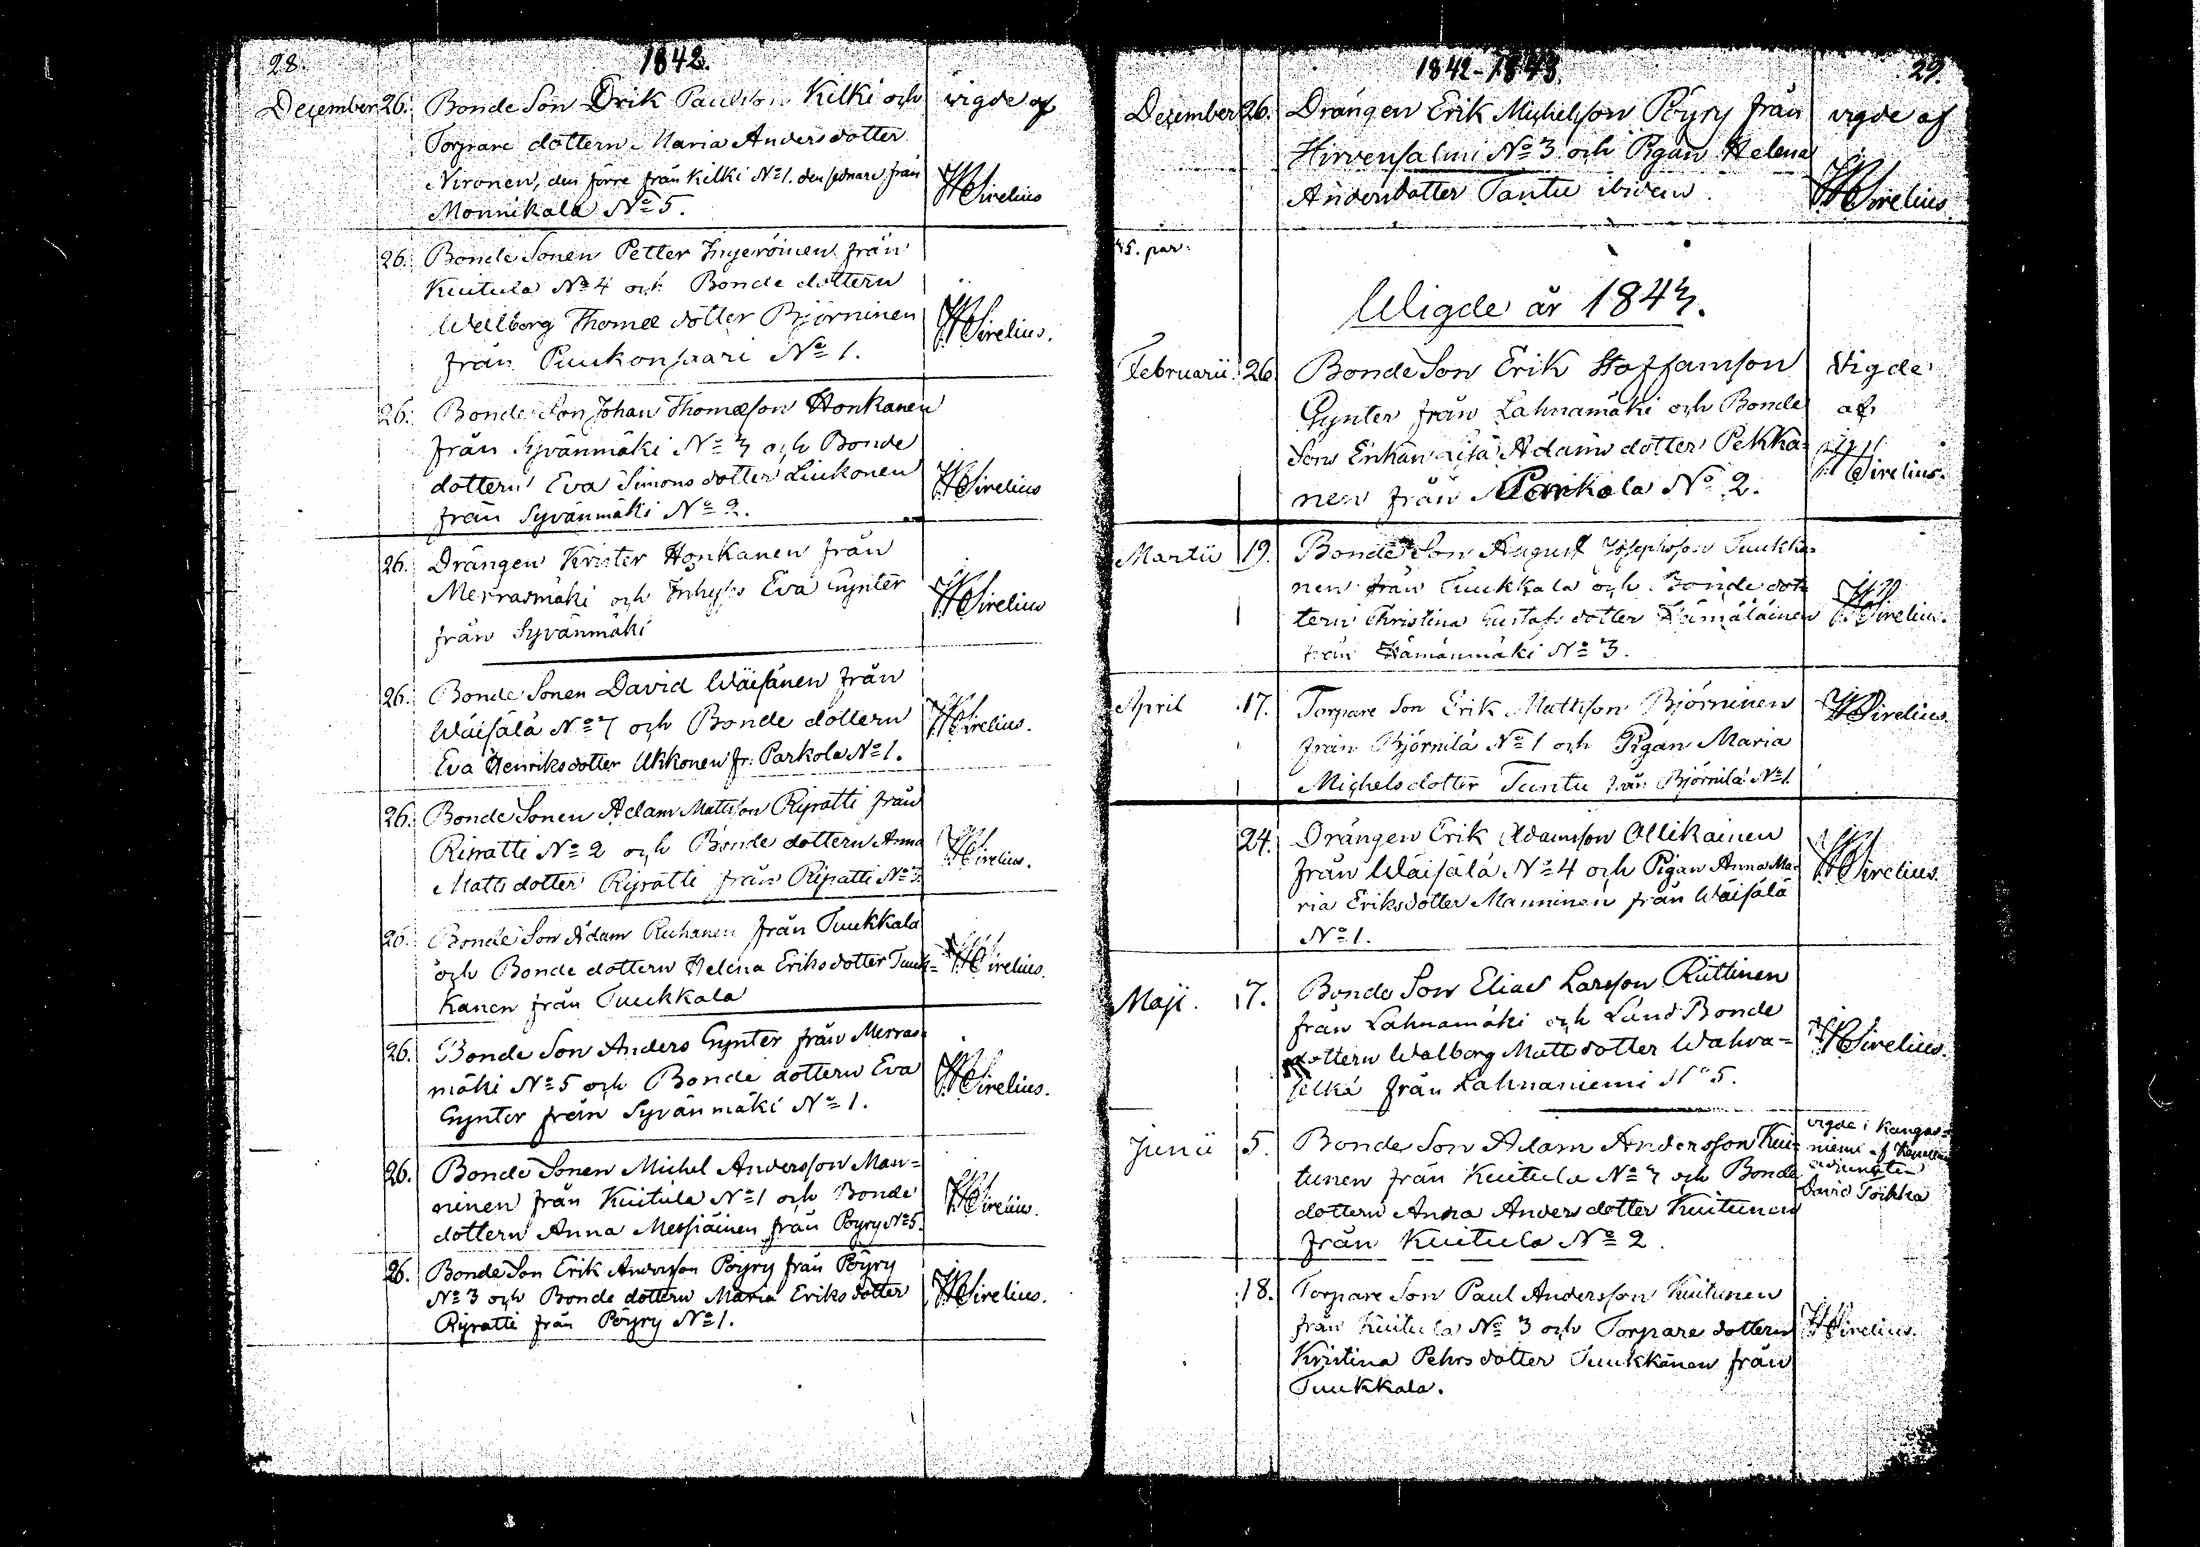 28.
1842.
December 26. Bonde Son Erik Paulsson Kilki och vigde af
Torpare dottern Maria Andersdotter
Nironen, den förre från Kilki No 1. den sednare från
Monnikala No 5. HSirelius
26. Bonde Sonen Petter Ingeröinen från
Kuitula No 4 och Bonde dottern
Wallborg Thomæ dotter Björninen
från Puukonsaari No 1. HSirelius.
26. Bonde Son Johan Thomæson Honkanen
från Syvänmäki No 3 och Bonde
dottern Eva Simons dotter Liukonen
från Syvänmäki No 2. HSirelius
26. Drängen Krister Honkanen från
Merrasmäki och Inhyses Eva Gynter
från Syvänmäki HSirelius
26. Bonde Sonen David Wäisänen från
Wäisälä No 7 och Bonde dottern
Eva Henriksdotter Ukkonen fr: Parkola No 1. HSirelius.
26. Bonde Sonen Adam Mattson Ripatti från
Ripatti No 2 och Bonde dottern Anna
Matts dotter Ripatti från Ripatti No 3. HSirelius.
26. Bonde Son Adam Ruhanen från Tuukkala
och Bonde dottern Helena Eriksdotter Tuuk=
kanen från Tuukkala HSirelius.
26. Bonde Son Anders Gynter från Merras=
mäki No 5 och Bonde dottern Eva
Gynter från Syvänmäki No 1. HSirelius.
26. Bonde Sonen Michel Andersson Man=
ninen från Kuitula No 1 och Bonde
dottern Anna Messiäinen från Pöyry No 5. HSirelius.
26. Bonde Son Erik Andersson Pöyry från Pöyry
No 3 och Bonde dottern Maria Eriks dotter
Ripatti från Pöyry No 1. HSirelius.
1842-1843.
29.
December 26. Drängen Erik Michelsson Pöyry från vigde af
Hirvensalmi No 3 och Pigan Helena
Andersdotter Tantu ibidem. HSirelius.
45. par.
Wigde år 1843.
Februarii 26 Bonde Son Erik Staffansson Vigde
Gynter från Lahnamäki och Bonde af
Sons Enkan Lisa Adams dotter Pekka=
nen från Parikala No 2. HSirelius.
Martii 19. Bonde Son August Josephsson Tuukka=
nen från Tuukkala och Bonde dot=
tern Christina Gustafs dotter Hämäläinen HSirelius.
från Hämänmäki No 3.
April 17. Torpare Son Erik Mattsson Björninen HSirelius.
från Björnilä No 1 och Pigan Maria
Michelsdotter Tuntu från Björnilä No 1
24. Drängen Erik Adamsson Ollikainen
från Wäisälä No 4 och Pigan Anna Ma= HSirelius.
ria Eriksdotter Manninen från Wäisälä
No 1.
Maji. 7. Bonde Son Elias Larsson Riittinen
från Lahnamäki och Land Bonde
dottern Walborg Mattsdotter Wahva=
selkä från Lahnaniemi No 5. HSirelius.
Junii 5. Bonde Son Adam Andersson Kui=
tunen från Kuitula No 7 och Bonde
dottern Anna Anders dotter Kuitunen
från Kuitula No 2.
vigde i Kangas=
niemi af
David Toikka
18. Torpare Son Paul Andersson Kuitunen
från Kuitula No 3 och Torpare dottern HSirelius.
Kristina Pehrs dotter Tuukkanen från
Tuukkala.